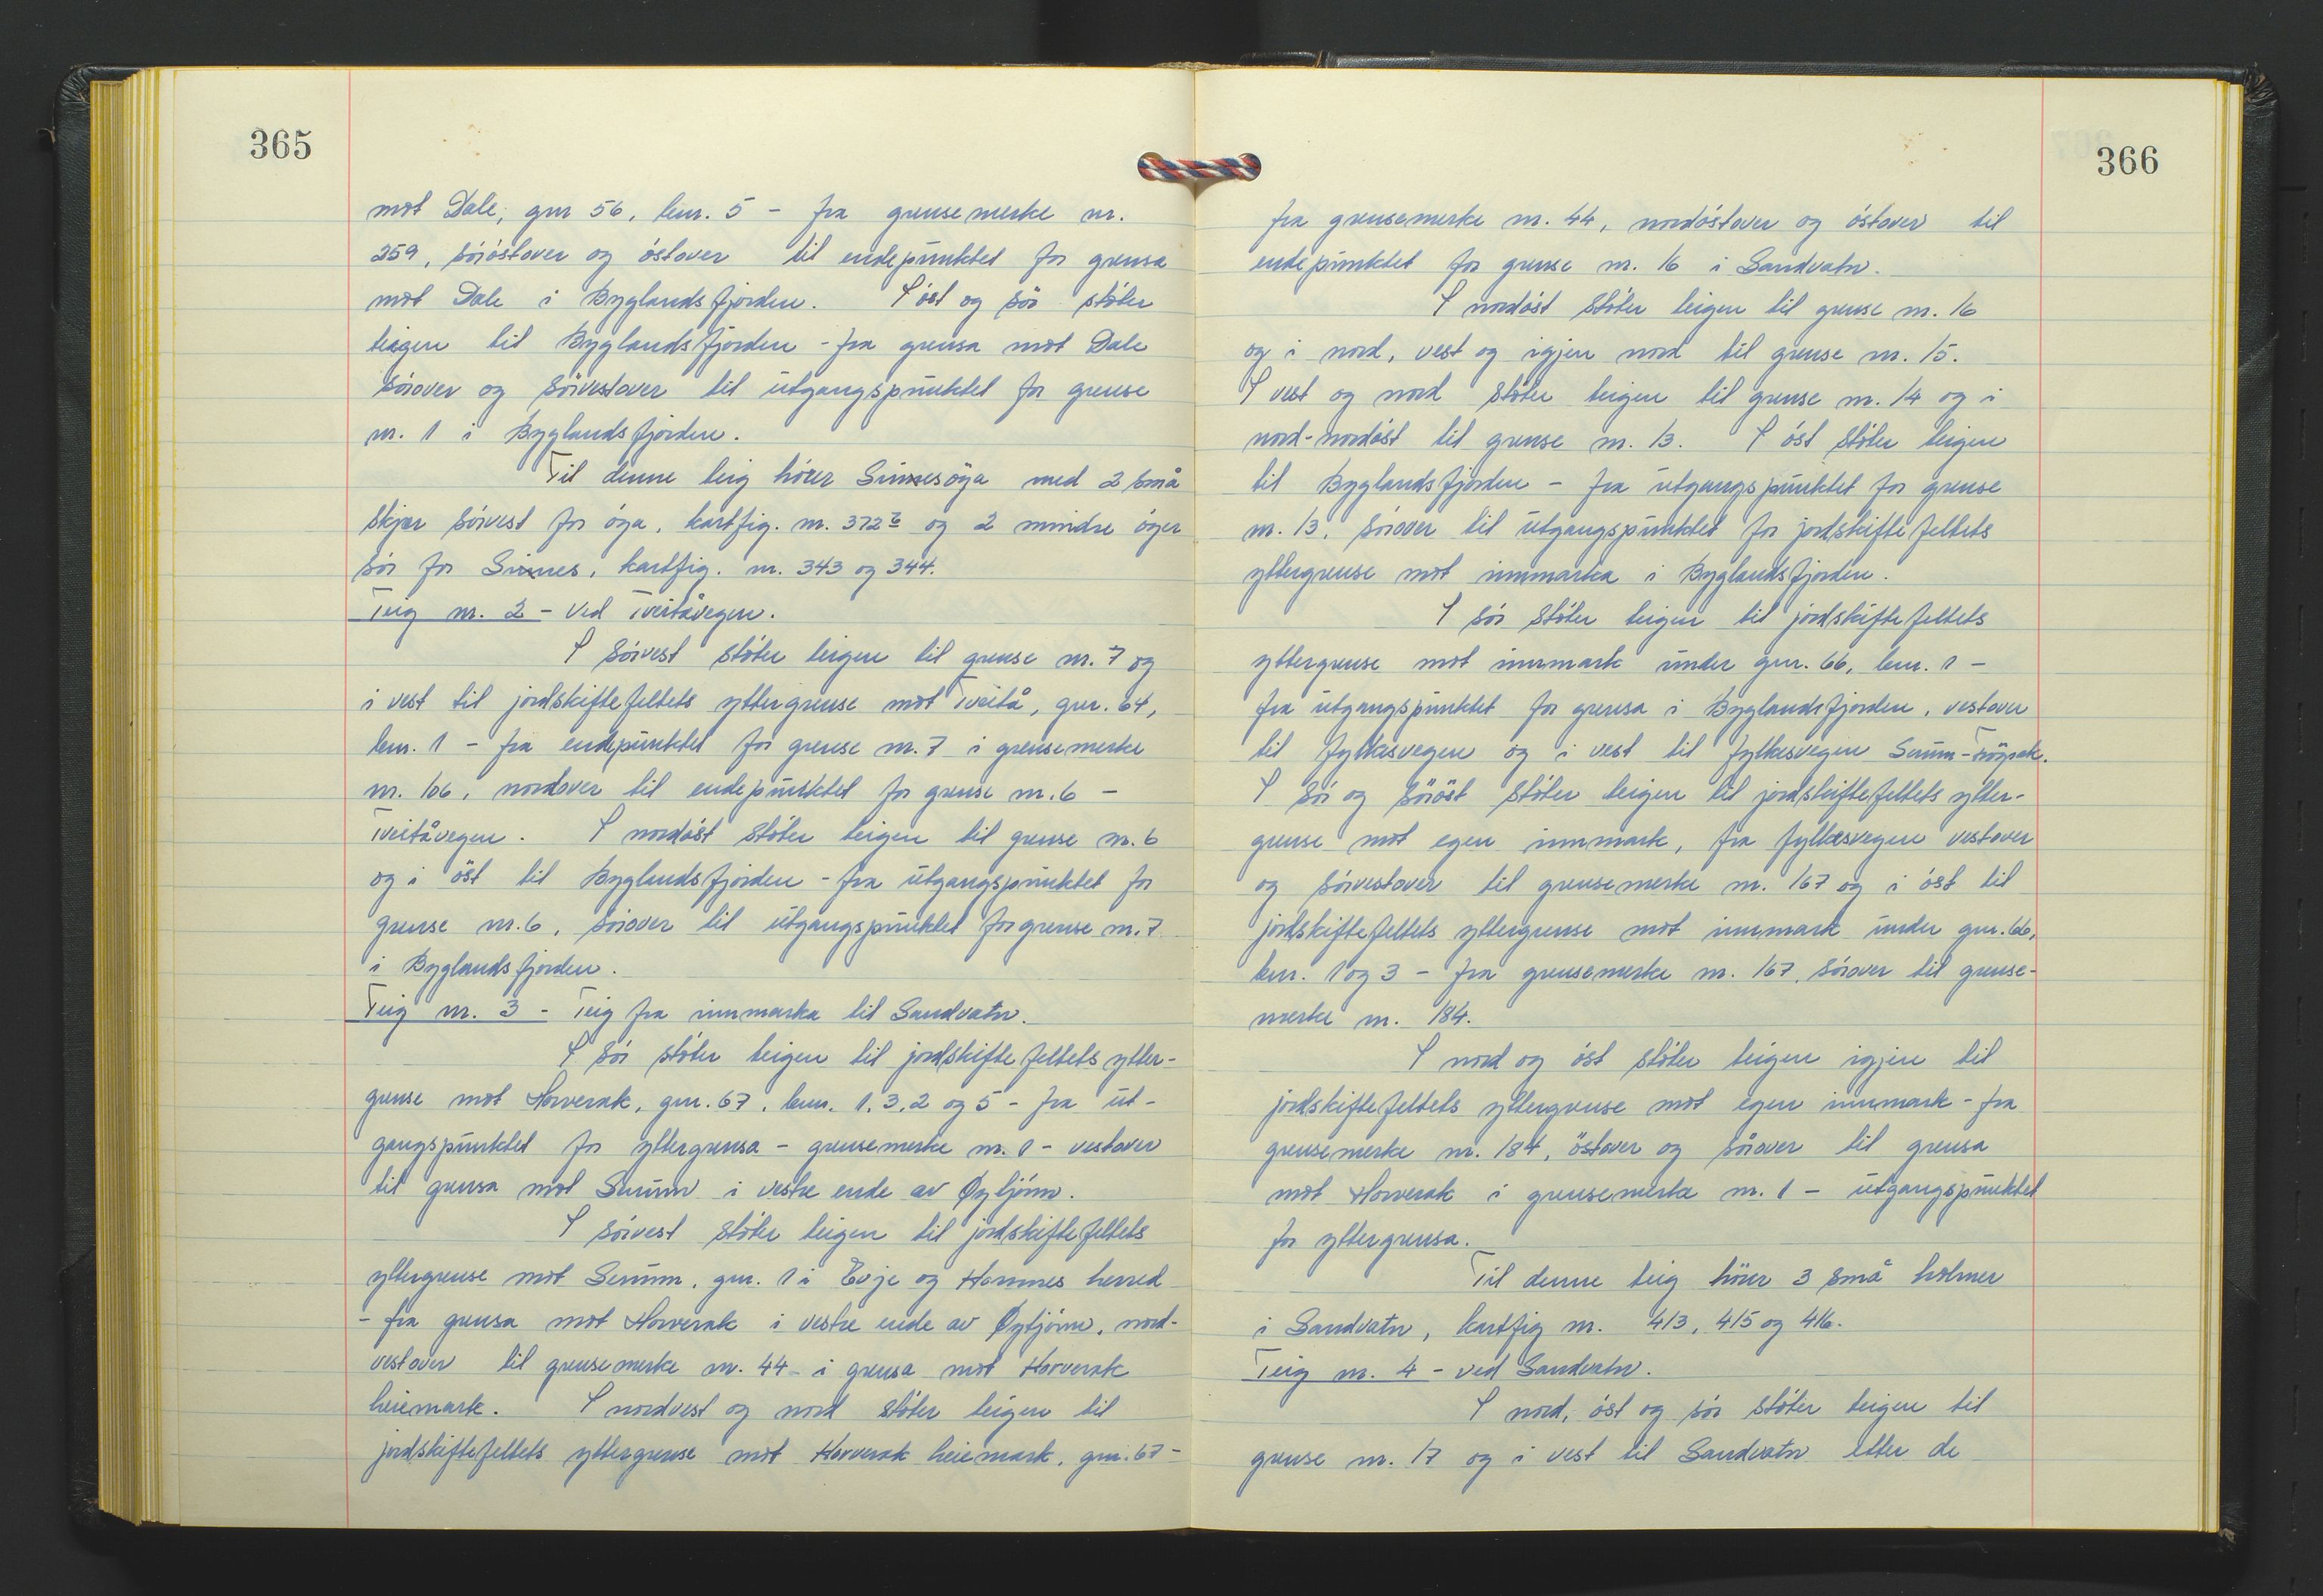 365
mot Dale, gnr 56, bnr. 5 - fra grensemerke nr.
259, søröstover og östover til endepunktet for grensa
mot Dale i Byglandsfjorden. I öst og sör stöter
teigen til Byglandsfjorden - fra grensa mot Dale
sörover og sörvestover til utgangspunktet for grense
nr. 1 i Byglandsfjorden.
Til denne teig hörer Sinnesöya med 2 små
skjær sörvest for öya, kartfig. nr. 372 og 2 mindre öyer
sör for Sinnes, kartfig. nr. 343 og 344.
Teig nr. 2 - Ved Tveitåvegen.
I Sörvest stöter teigen til grense nr. 7 og
i vest til jordskiftefeltets yttergrense mot Tveitå, gnr. 64,
bnr. 1 - fra endepunktet for grense nr. 7 i grensemerke
nr. 106, nordover til endepunktet for grense nr. 6 -
Tveitåvegen. I nordöst stöter teigen til grense nr. 6
og i öst til Byglandsfjorden - fra utgangspunktet for
grense nr. 6, sörover til utgangspunktet for grense nr. 7
i Byglandsfjorden.
Teig nr. 3 - Teig fra innmarka til Sandvatn.
I Sör stöter teigen til jordskiftefeltets ytter-
grense mot Horverak, gnr. 67, bnr. 1, 3, 2 og 5 - fra ut-
gangspunktet for yttergrensa - grensemerke nr. 1 - vestover
til grensa mot Senum i vestre ende av Øytjönn.
I sörvest stöter teigen til jordskiftefeltets
yttergrense mot Senum, gnr. 1 i Evje og Hornnes herred
- fra grensa mot Horverak i vestre ende av Øytjönn, nord-
vestover til grensemerke nr. 44 - i grensa mot Horverak
heiemark. I nordvest og nord stöter teigen til
jordskiftefeltets yttergrense mot Horverak heiemark, gnr. 67 -
366
fra grensemerke nr. 44, nordöstover og östover til
endepunktet for grense nr. 16 i Sandvatn.
I nordöst stöter teigen til grense nr. 16
og i nord, vest og igjen nord til grense nr. 15.
I vest og nord stöter teigen til grense nr. 14 og i
nord-nordöst til grense nr. 13. I öst stöter teigen
til Byglandsfjorden - fra utgangspunktet for grense
nr. 13, sörover til utgangspunktet for jordskiftefeltets
yttergrense mot innmarka i Byglandsfjorden.
I sör stöter teigen til jordskiftefeltets
yttergrense mot innmark under gnr. 66, bnr. 1 -
fra utgangspunktet for grensa i Byglandsfjorden, vestover
til fylkesvegen og i vest til fylkesvegen Senum -
I sör og söröst stöter teigen til jordskiftefeltets ytter-
grense mot egen innmark, fra fylkesvegen vestover
og sörvestover til grensemerke nr. 167 og i öst til
jordskiftefeltets yttergrense mot innmark under gnr. 66,
bnr. 1 og 3 - fra grensemerke nr. 167, sörover til grense-
merke nr. 184.
I nord og öst stöter teigen igjen til
jordskiftefeltets yttergrense mot egen innmark - fra
grensemerke nr. 184, östover og sörover til grensa
mot Horverak i grensemerke nr. 1 - utgangspunktet
for yttergrensa.
Til denne teig hörer 3 små holmer
i Sandvatn, kartfig nr. 413, 415 og 416.
Teig nr. 4 - ved Sandvatn.
I nord, öst og sör stöter teigen til
grense nr. 17 og i vest til Sandvatn etter de